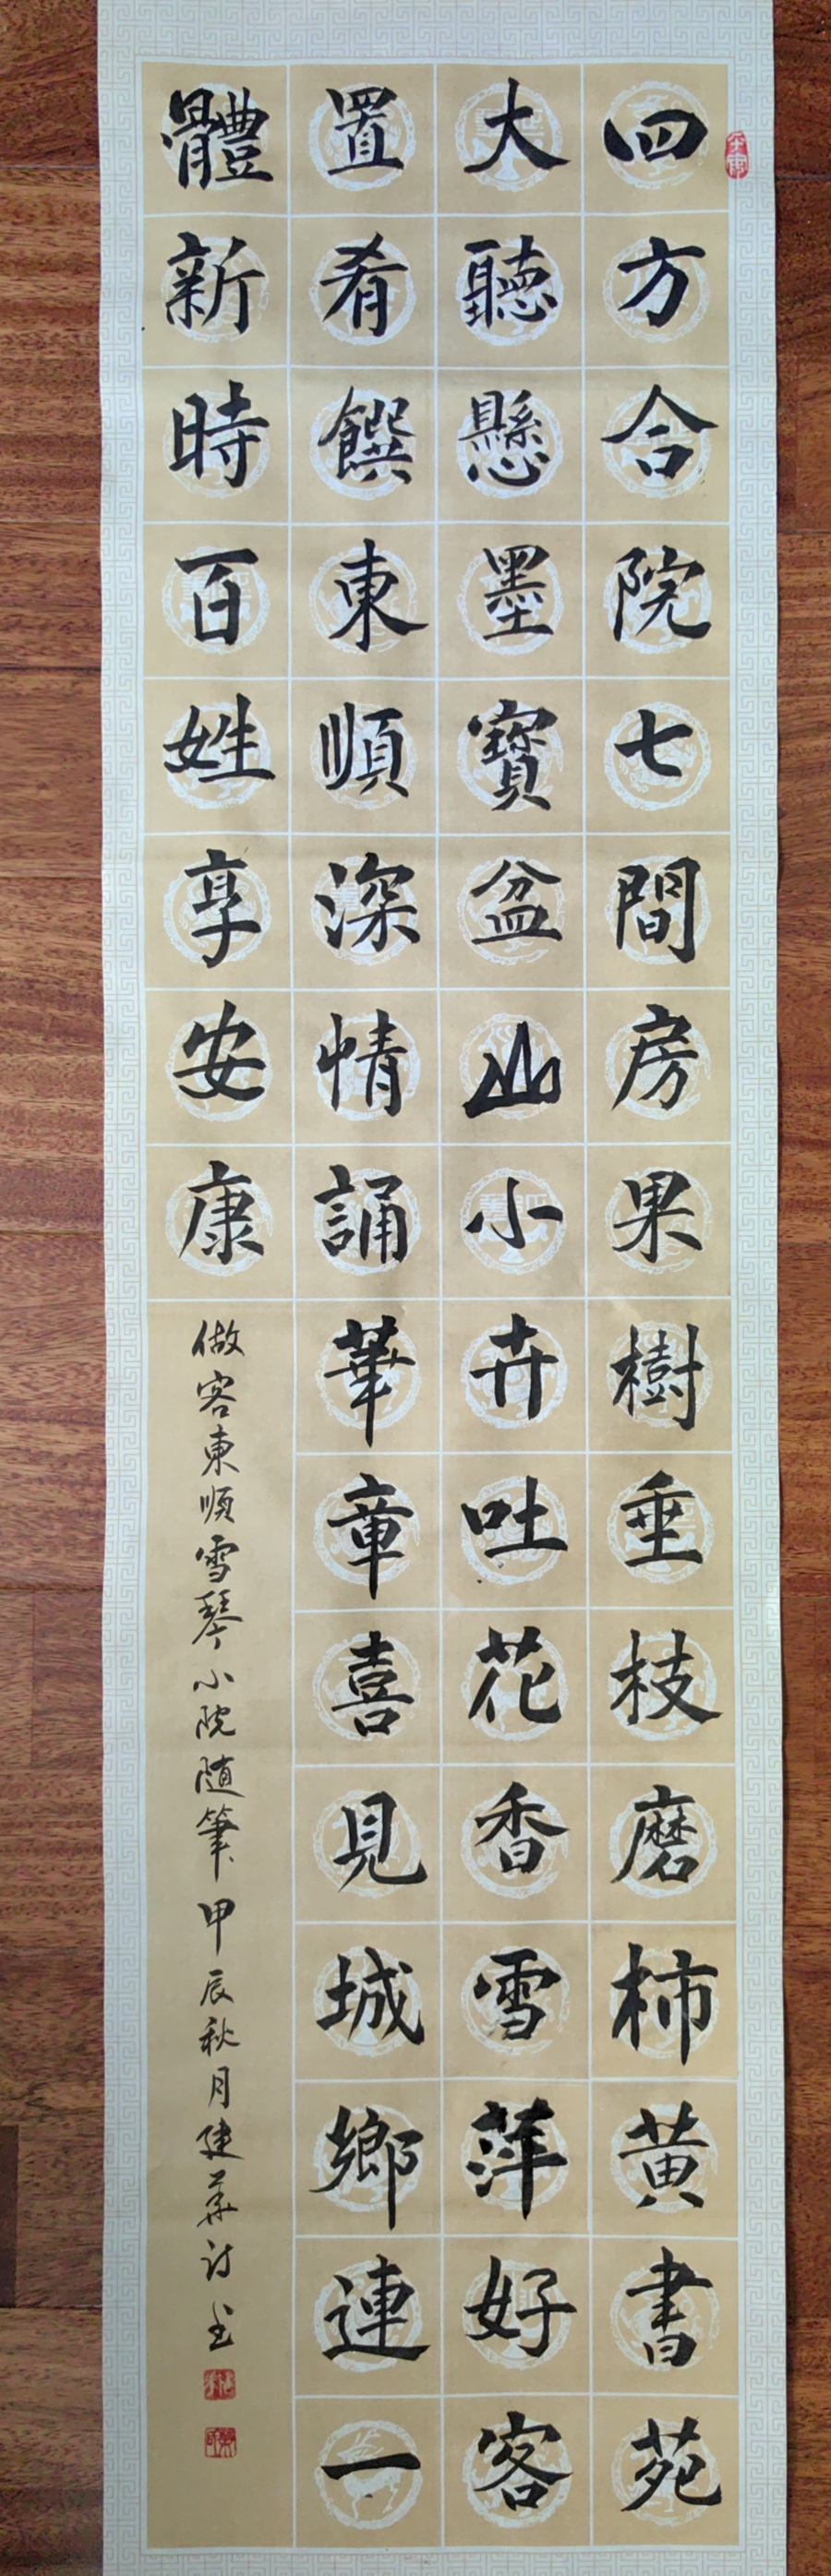 四方合院七間房果樹垂枝磨柿黄書苑
大聽懸墨寶盆山小卉吐花香雪萍好客
置肴饌東順深情誦華章喜見城鄉連一
體新時百姓享安康
做客東順雪琴小院随筆甲辰秋月建華詩书